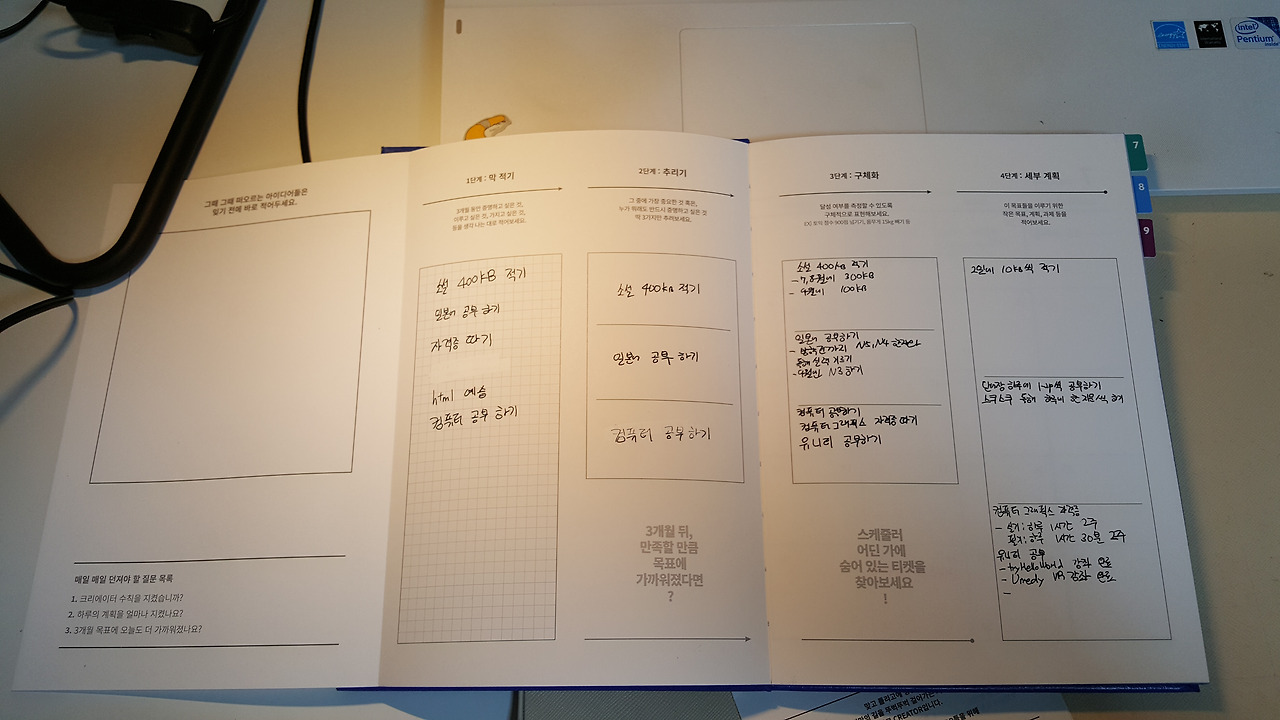 그때 그때 떠오르는 아이디어들은
잊기 전에 바로 적어두세요.
매일 매일 던져야 할 질문 목록
1. 크리에이터 수칙을 지켰습니까?
2. 하루의 계획을 얼마나 지켰나요?
3. 3개월 목표에 오늘도 더 가까워졌나요?
1단계 : 막 적기
3개월 동안 증명하고 싶은 것,
이루고 싶은 것, 가지고 싶은 것,
등을 생각 나는 대로 적어보세요.
소설 400kB 적기
일본어 공부 하기
자격증 따기
html 예습
컴퓨터 공부 하기
2단계 : 추리기
그 중에 가장 중요한 것 혹은,
누가 뭐래도 반드시 증명하고 싶은 것
딱 3가지만 추려보세요.
소설 400kB 적기
일본어 공부 하기
컴퓨터 공부 하기
3개월 뒤,
만족할 만큼
목표에
가까워졌다면
?
3단계 : 구체화
달성 여부를 측정할 수 있도록
구체적으로 표현해보세요.
EX) 토익 점수 900점 넘기기, 몸무게 15kg 빼기 등
소설 400kB 적기
- 7,8월에 300kB
- 9월에 100kB
일본어 공부하기
N5, N4
독해 실력 키우기
- 9월엔 N3 하기
컴퓨터 공부하기
컴퓨터 그래픽스 자격증 따기
유니티 공부하기
스케줄러
어딘 가에
숨어 있는 티켓을
찾아보세요
!
4단계 : 세부 계획
이 목표들을 이루기 위한
작은 목표, 계획, 과제 등을
적어보세요.
2일에 10kB씩 적기
단어장 하루에 1-up씩 공부하기
독해 하루에 한 지문씩 하기
컴퓨터 그래픽스 자격증
- 실기: 하루 1시간 2주
필기: 하루 1시간 30분 2주
유니티 공부
- tryHelloWorld 강좌 완료
- Umedy VR 강좌 완료
-
7
8
9
intel
Pentium
inside